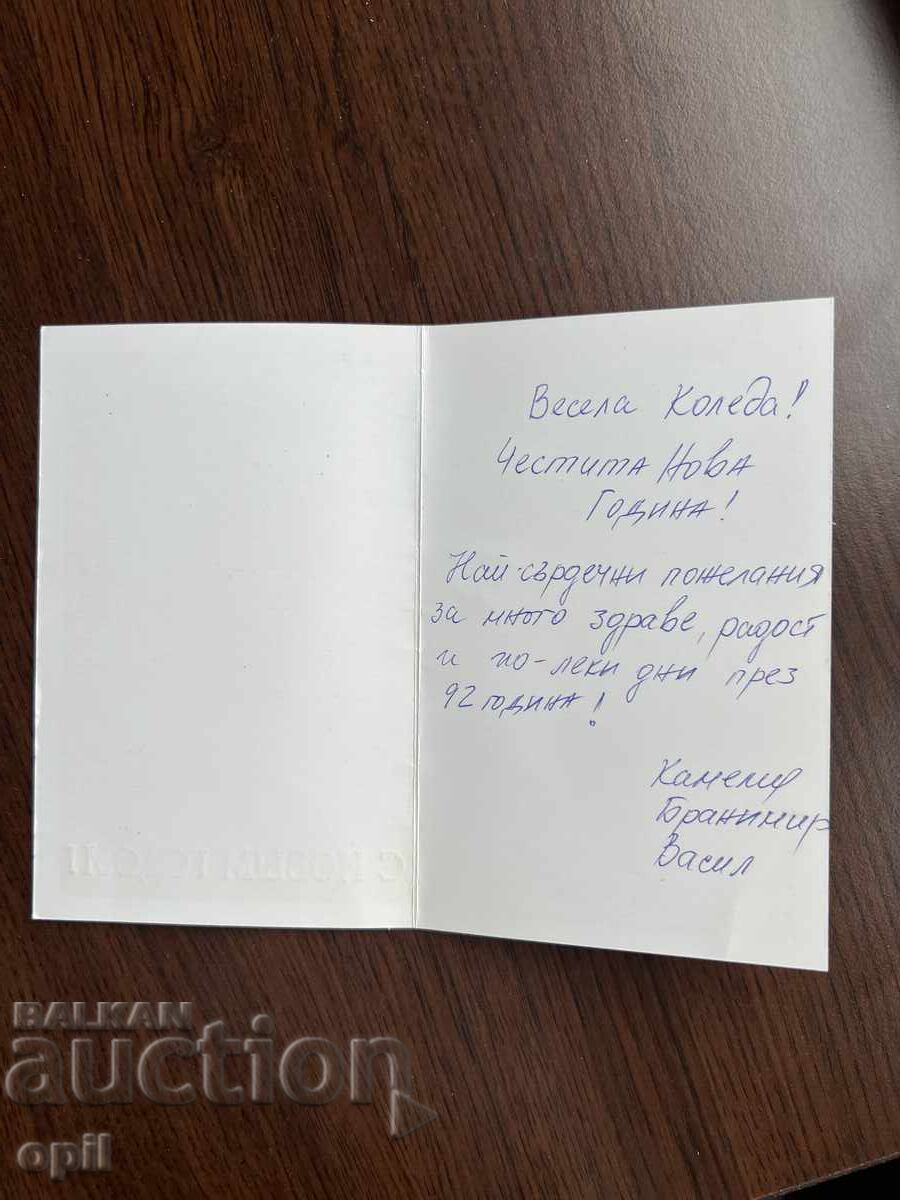 Весела Коледа!
Честита Нова
Година!
Най-сърдечни пожелания
за много здраве, радост
и по-леки дни през
92 година!
Камелия
Бранимир
Васил
BALKAN
auction
opil